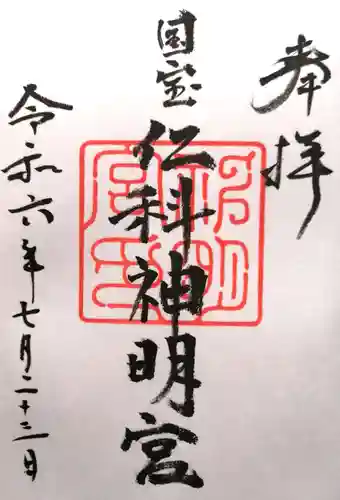 奉拝
国宝
仁科神明宮
令和六年七月二十二日